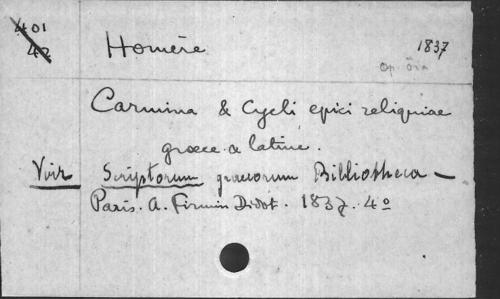 401
42
Homère 1837
Carmina & Cycli epici reliquiae
graece a latine.
Voir Scriptorum graecorum Bibliotheca —
Paris. A. Firmin Didot. 1837. 4º